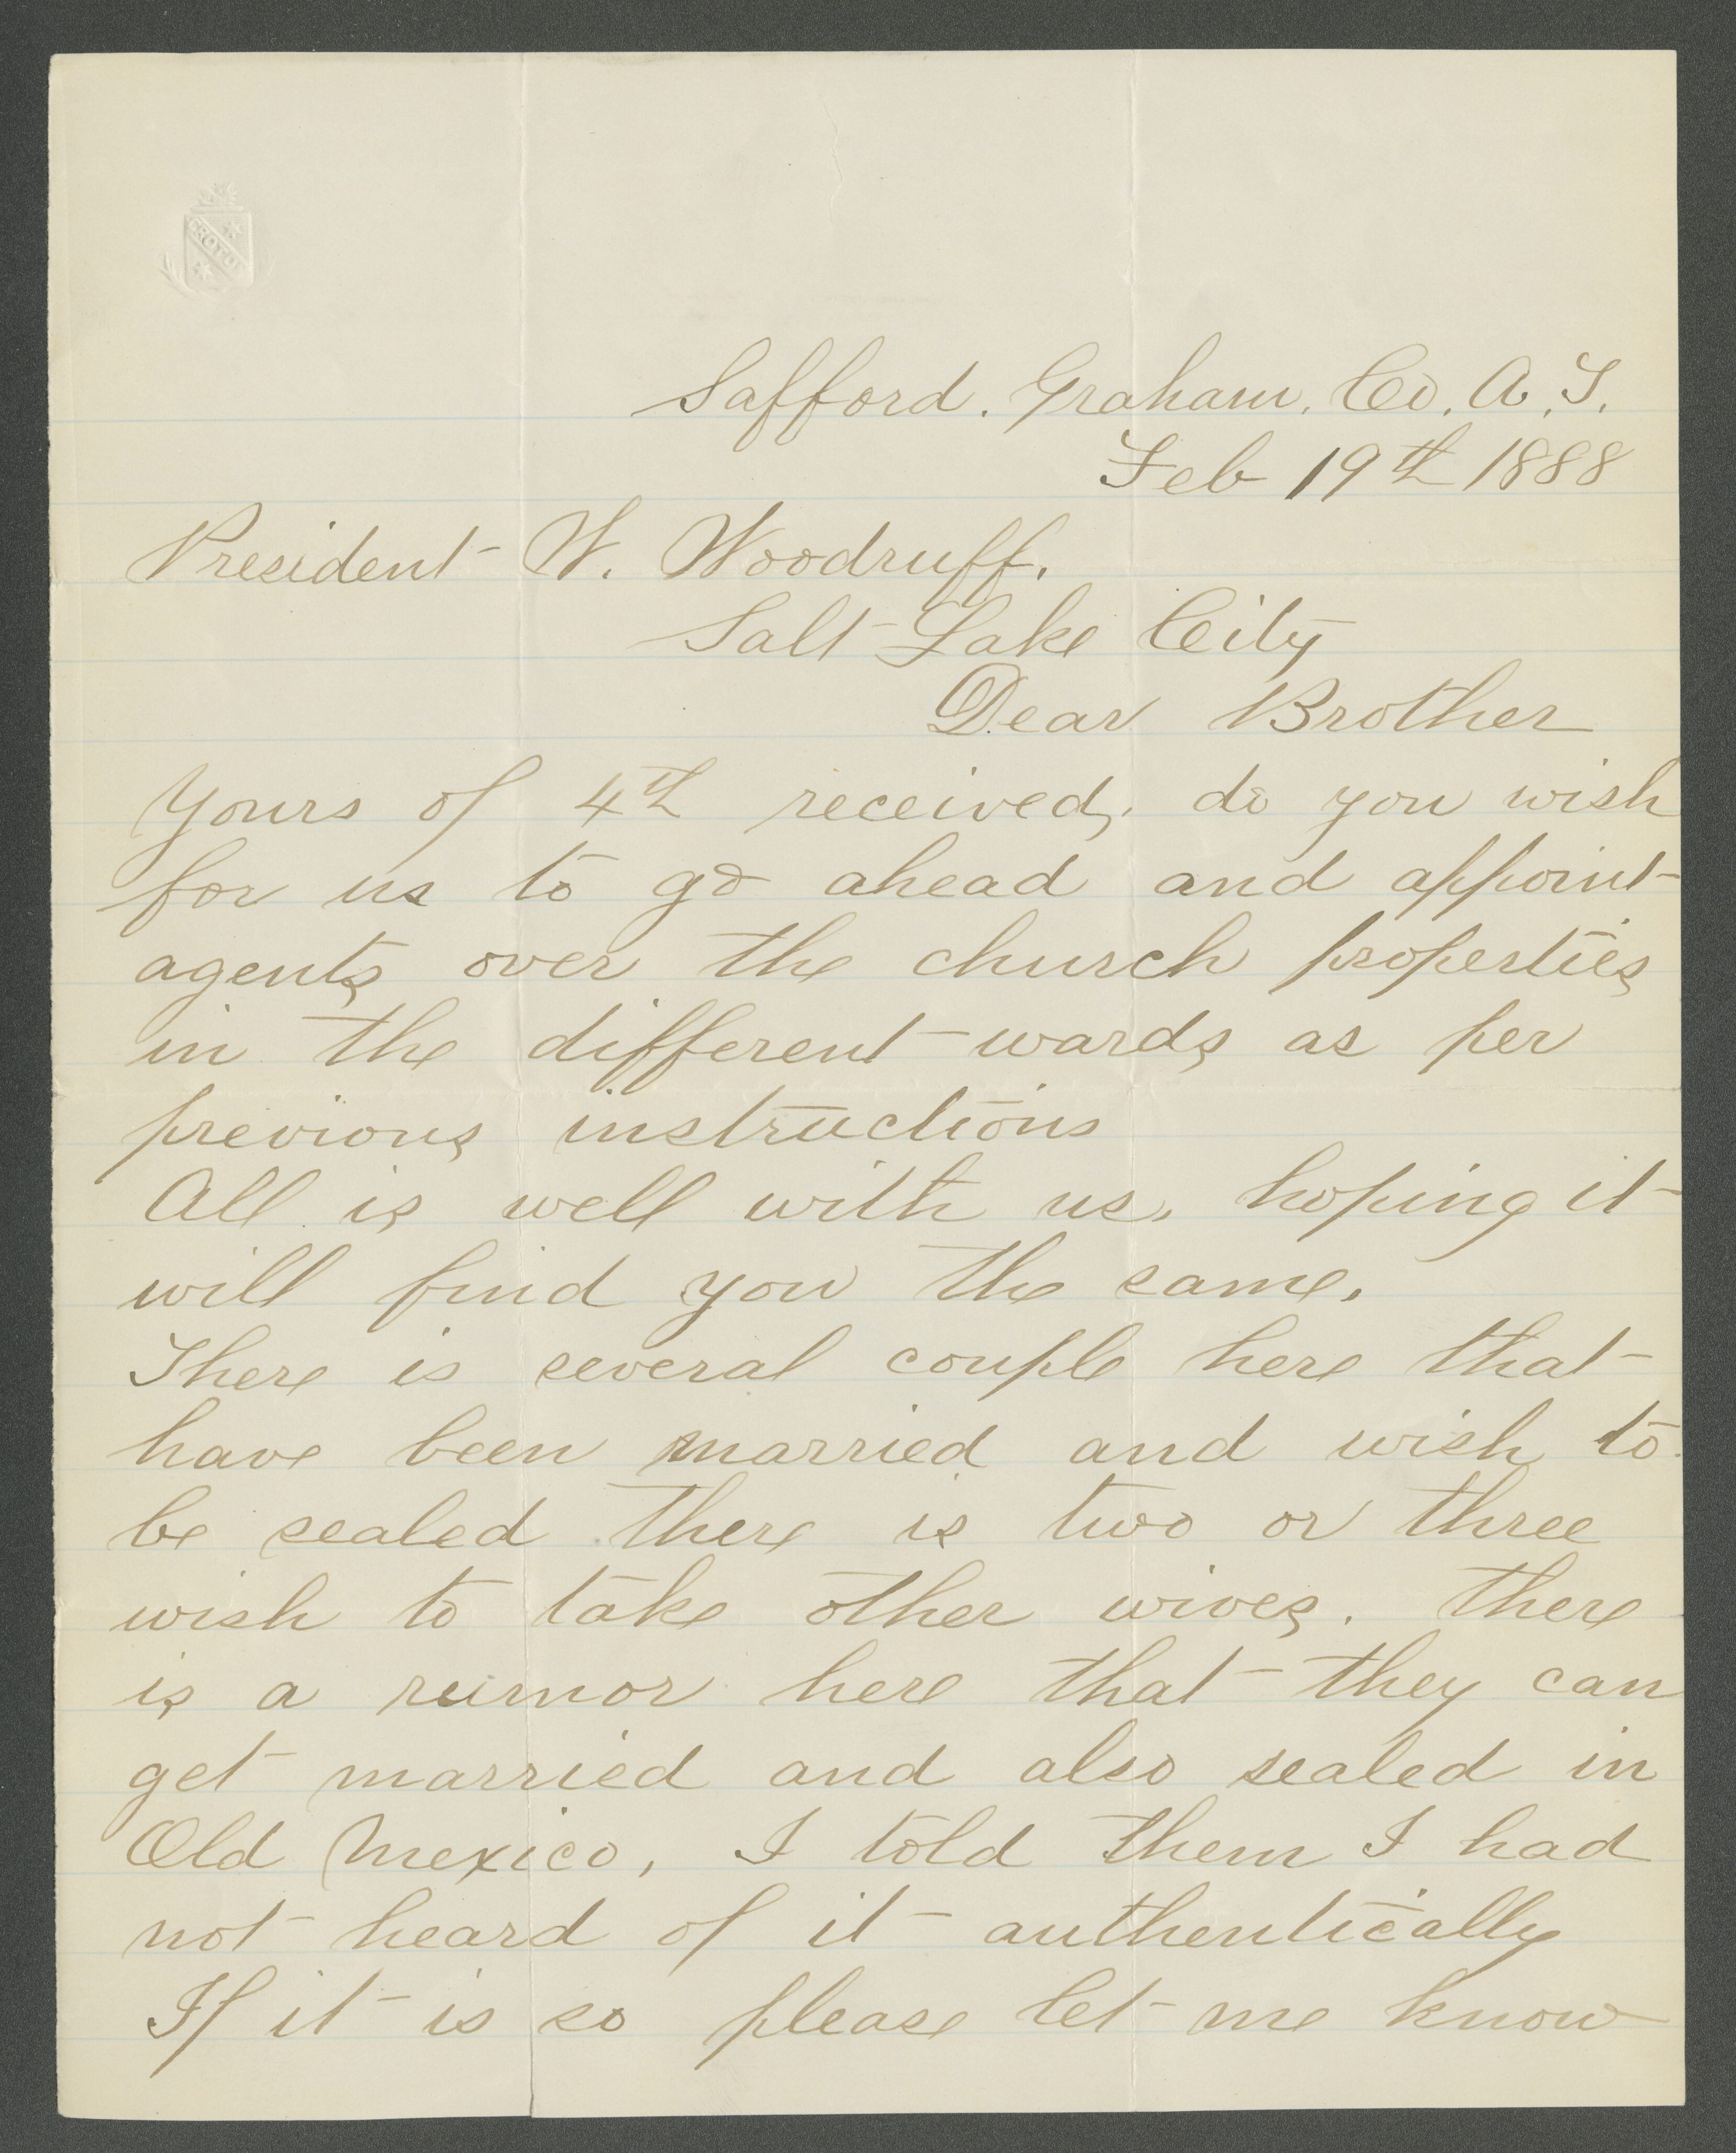 Safford. Graham. Co. A. T.
Feb 19th 1888
President W. Woodruff.
Salt Lake City
Dear Brother
Yours of 4th received, do you wish
for us to go ahead and appoint
agents over the church properties
in the different wards as per
previous instructions
All is well with us, hoping it
will find you the same.
There is several couple here that
have been married and wish to
be sealed there is two or three
wish to take other wives. there
is a rumor here that they can
get married and also sealed in
Old Mexico, I told them I had
not heard of it authentically
If it is so please let me know